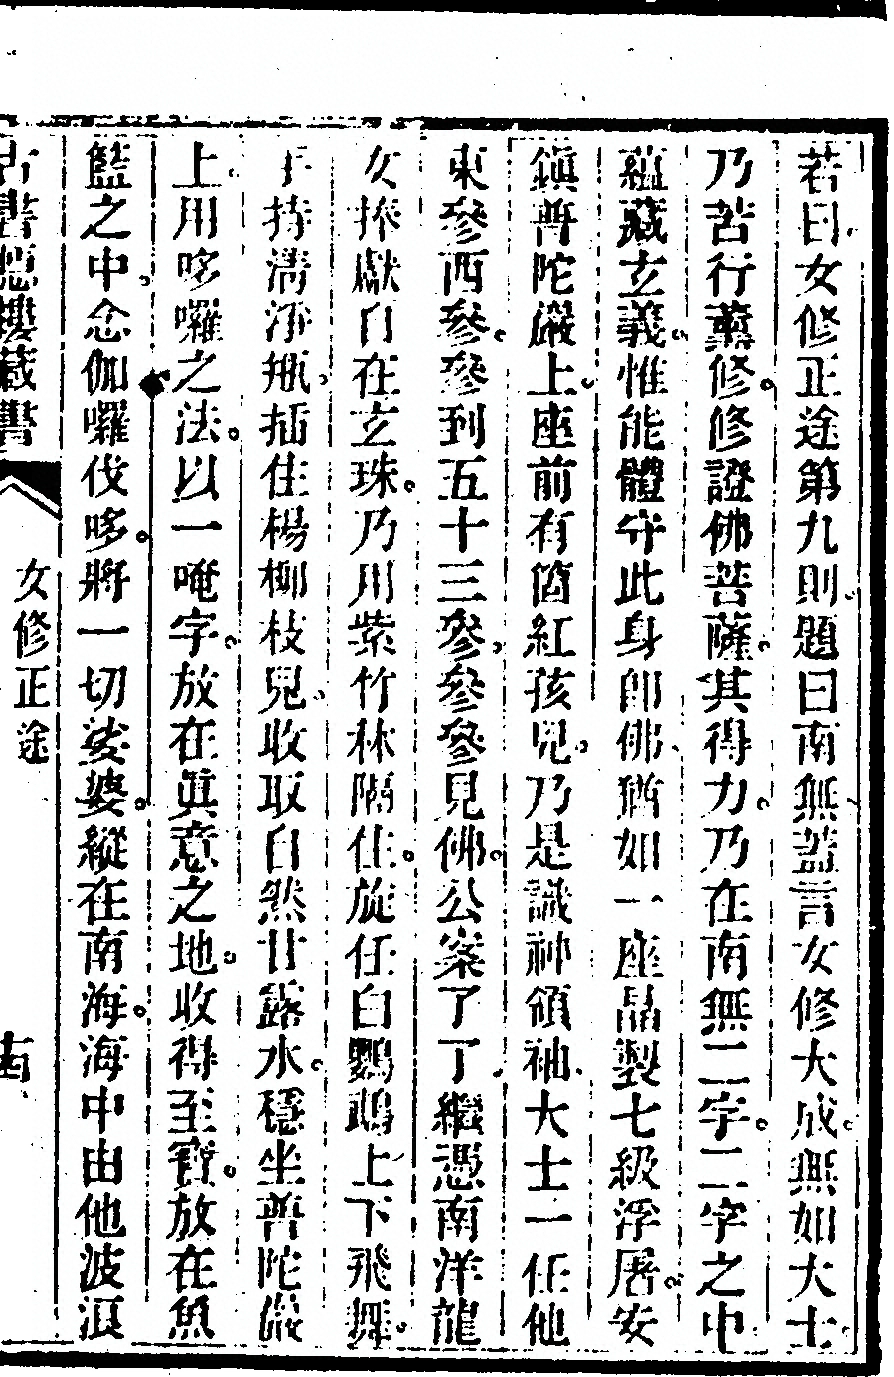 若曰女修正途第九則題曰南無蓋言女修大成無如大士
乃苦行薰修。修證佛菩薩。其得力。乃在南無二字。二字之中
蘊藏玄義。惟能體守此身卽佛、猶如一座晶製七級浮屠。安
鎮普陀巖上。座前有箇紅孩兒。乃是識神領袖。大士一任他
東參西參。參到五十三參。參參見佛。公案了了。繼憑南洋龍
女捧獻自在玄珠。乃用紫竹林隔住。旋任白鸚鵡上下飛舞。
手持淸淨瓶。插住楊柳枝兒。收取自然甘露水。穩坐普陀巖
上。用哆囉之法。以一唵字。放在眞意之地。收得至寶。放在魚
籃之中。念伽囉伐哆。將一切娑婆。縱在南海。海中由他波浪
古書隱樓藏書
女修正途